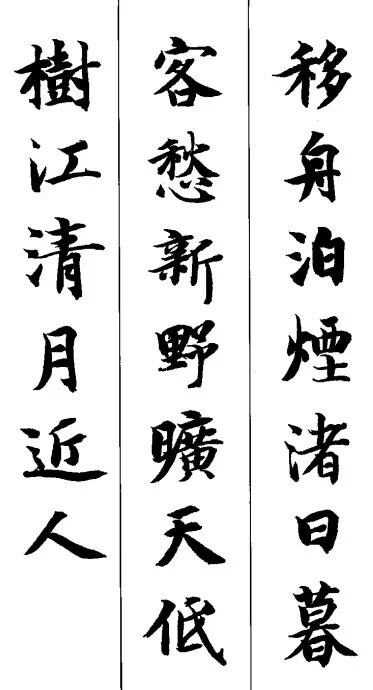 移舟泊煙渚日暮
客愁新野曠天低
樹江清月近人